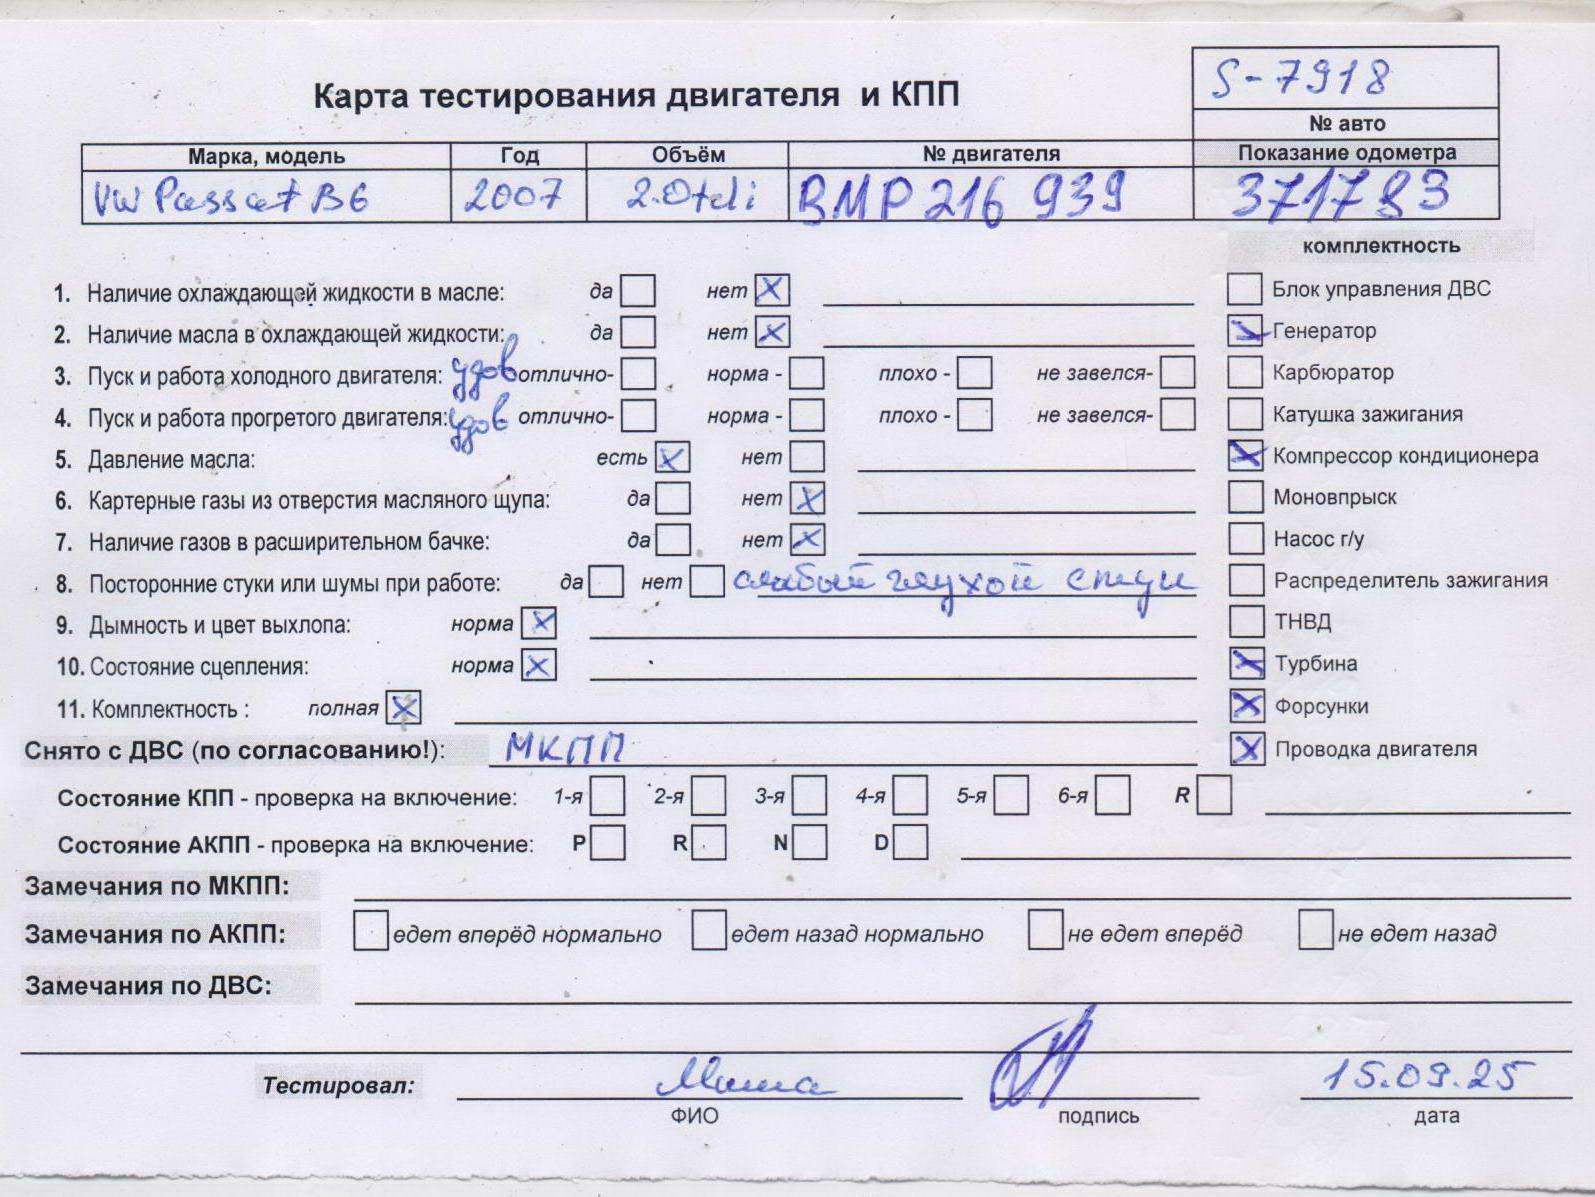 S-7918
Карта тестирования двигателя и КПП
№ авто
Марка, модель Год Объём № двигателя Показание одометра
VW Passat B6 2007 2.0tdi BMP 216 939 371783
комплектность
1. Наличие охлаждающей жидкости в масле: да нет X Блок управления ДВС
2. Наличие масла в охлаждающей жидкости: да нет X Генератор
3. Пуск и работа холодного двигателя: удов отлично- норма - плохо - не завелся- Карбюратор
4. Пуск и работа прогретого двигателя: удов отлично- норма - плохо - не завелся- Катушка зажигания
5. Давление масла: есть X нет X Компрессор кондиционера
6. Картерные газы из отверстия масляного щупа: да нет X Моновпрыск
7. Наличие газов в расширительном бачке: да нет X Насос г/у
8. Посторонние стуки или шумы при работе: да нет слабый глухой стук Распределитель зажигания
9. Дымность и цвет выхлопа: норма X ТНВД
10. Состояние сцепления: норма X X Турбина
11. Комплектность : полная X X Форсунки
Снято с ДВС (по согласованию!): МКПП X Проводка двигателя
Состояние КПП - проверка на включение: 1-я 2-я 3-я 4-я 5-я 6-я R
Состояние АКПП - проверка на включение: P R N D
Замечания по МКПП:
Замечания по АКПП: едет вперёд нормально едет назад нормально не едет вперёд не едет назад
Замечания по ДВС:
Тестировал: Миша 15.09.25
ФИО подпись дата